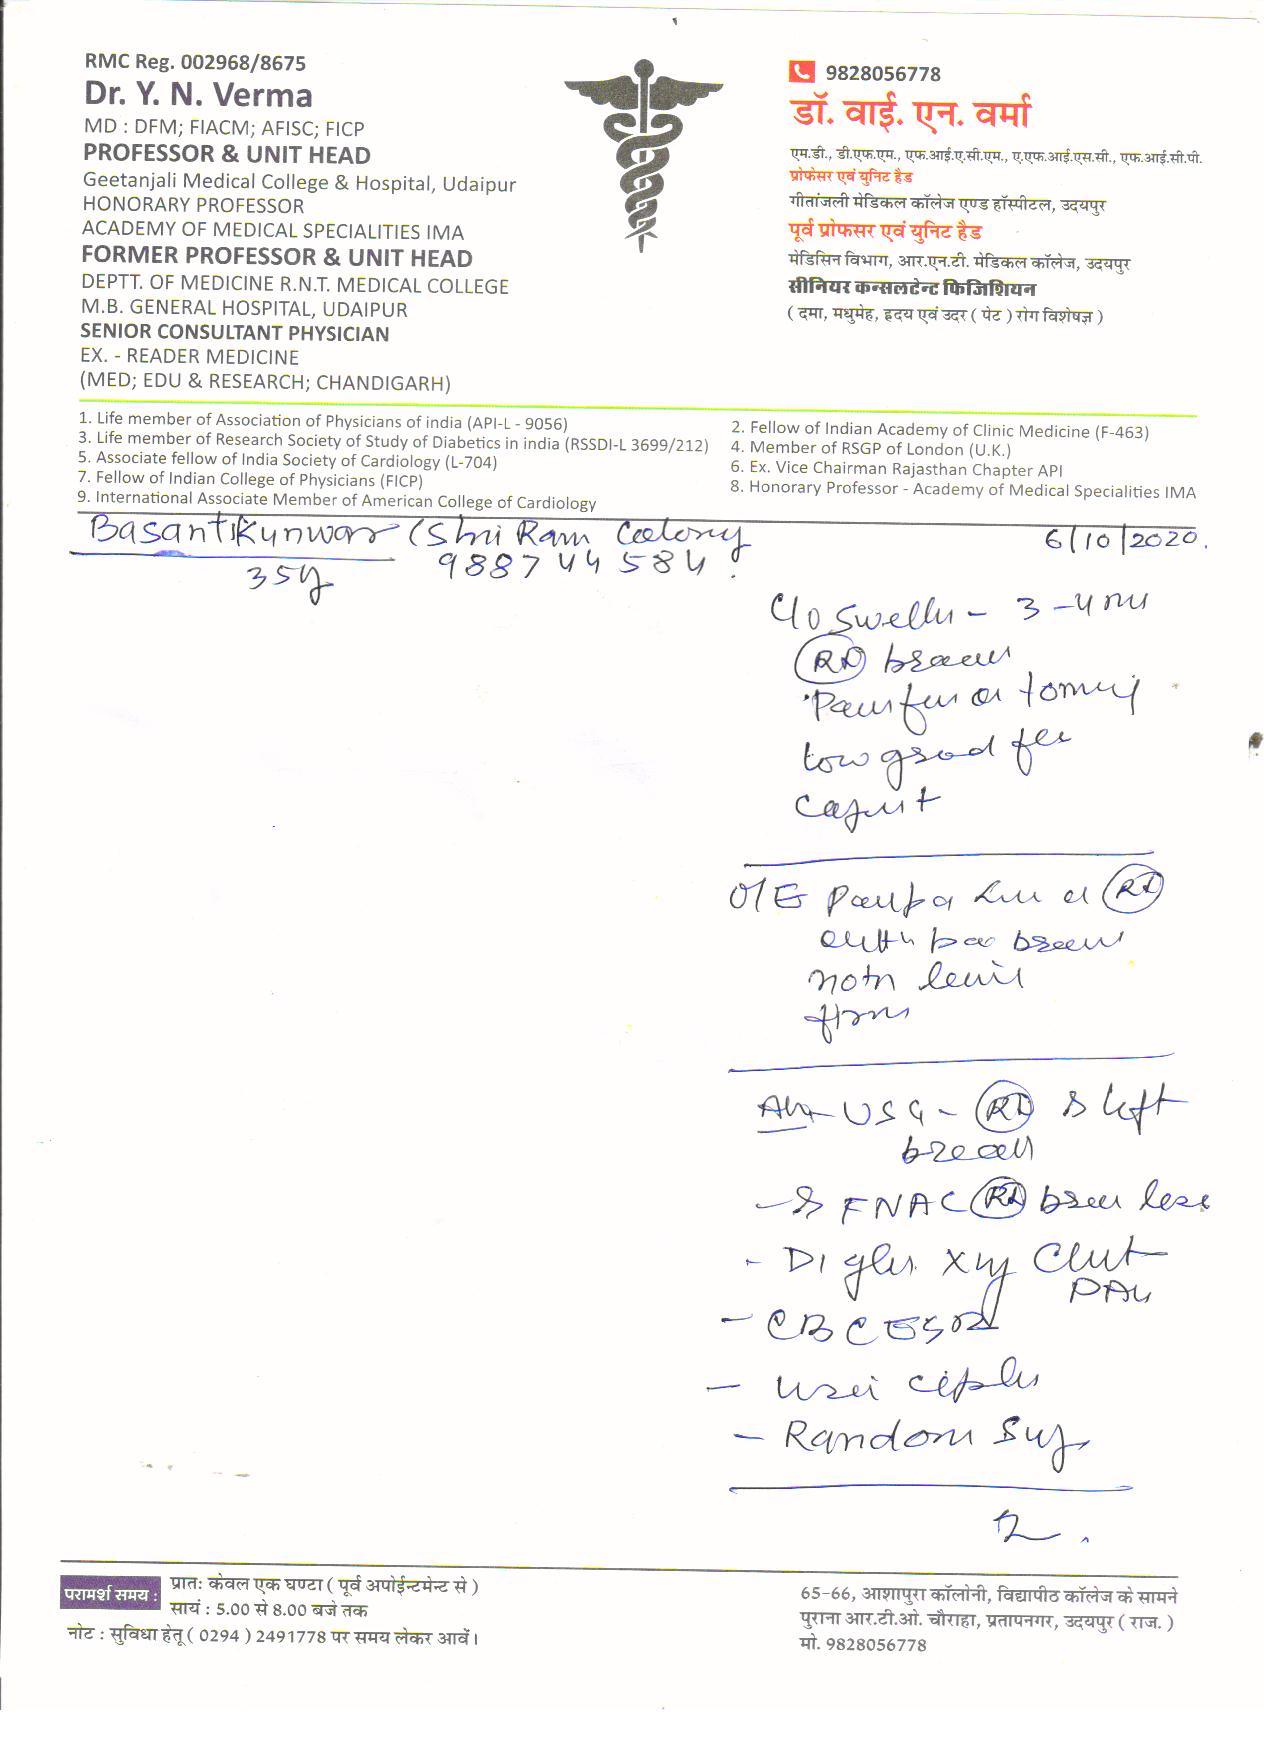 RMC Reg. 002968/8675
Dr. Y. N. Verma
MD : DFM; FIACM; AFISC; FICP
PROFESSOR & UNIT HEAD
Geetanjali Medical College & Hospital, Udaipur
HONORARY PROFESSOR
ACADEMY OF MEDICAL SPECIALITIES IMA
FORMER PROFESSOR & UNIT HEAD
DEPTT. OF MEDICINE R.N.T. MEDICAL COLLEGE
M.B. GENERAL HOSPITAL, UDAIPUR
SENIOR CONSULTANT PHYSICIAN
EX. - READER MEDICINE
(MED; EDU & RESEARCH; CHANDIGARH)
9828056778
डॉ. वाई. एन. वर्मा
एम.डी., डी.एफ.एम., एफ.आई.ए.सी.एम., ए.एफ.आई.एस.सी., एफ.आई.सी.पी.
प्रोफेसर एवं युनिट हैड
गीतांजली मेडिकल कॉलेज एण्ड हॉस्पीटल, उदयपुर
पूर्व प्रोफसर एवं युनिट हैड
मेडिसिन विभाग, आर.एन.टी. मेडिकल कॉलेज, उदयपुर
सीनियर कन्सलटेन्ट फिजिशियन
( दमा, मधुमेह, हृदय एवं उदर ( पेट ) रोग विशेषज्ञ )
1. Life member of Association of Physicians of india (API-L - 9056)
2. Fellow of Indian Academy of Clinic Medicine (F-463)
3. Life member of Research Society of Study of Diabetics in india (RSSDI-L 3699/212)
4. Member of RSGP of London (U.K.)
5. Associate fellow of India Society of Cardiology (L-704)
6. Ex. Vice Chairman Rajasthan Chapter API
7. Fellow of Indian College of Physicians (FICP)
8. Honorary Professor - Academy of Medical Specialities IMA
9. International Associate Member of American College of Cardiology
Basanti Kunwar (Shri Ram Colony
6/10/2020.
35y
9887744584.
C/o - 3-4
RT
low grad
O/E RT
firm
Adv - USG - RT & left
breast
- & FNAC RT
- Digital Xray Chest
PA
- CBC ESR
- Random
परामर्श समय :
प्रातः केवल एक घण्टा ( पूर्व अपोईन्टमेन्ट से )
सायं : 5.00 से 8.00 बजे तक
नोट : सुविधा हेतू ( 0294 ) 2491778 पर समय लेकर आवें।
65-66, आशापुरा कॉलोनी, विद्यापीठ कॉलेज के सामने
पुराना आर.टी.ओ. चौराहा, प्रतापनगर, उदयपुर ( राज. )
मो. 9828056778